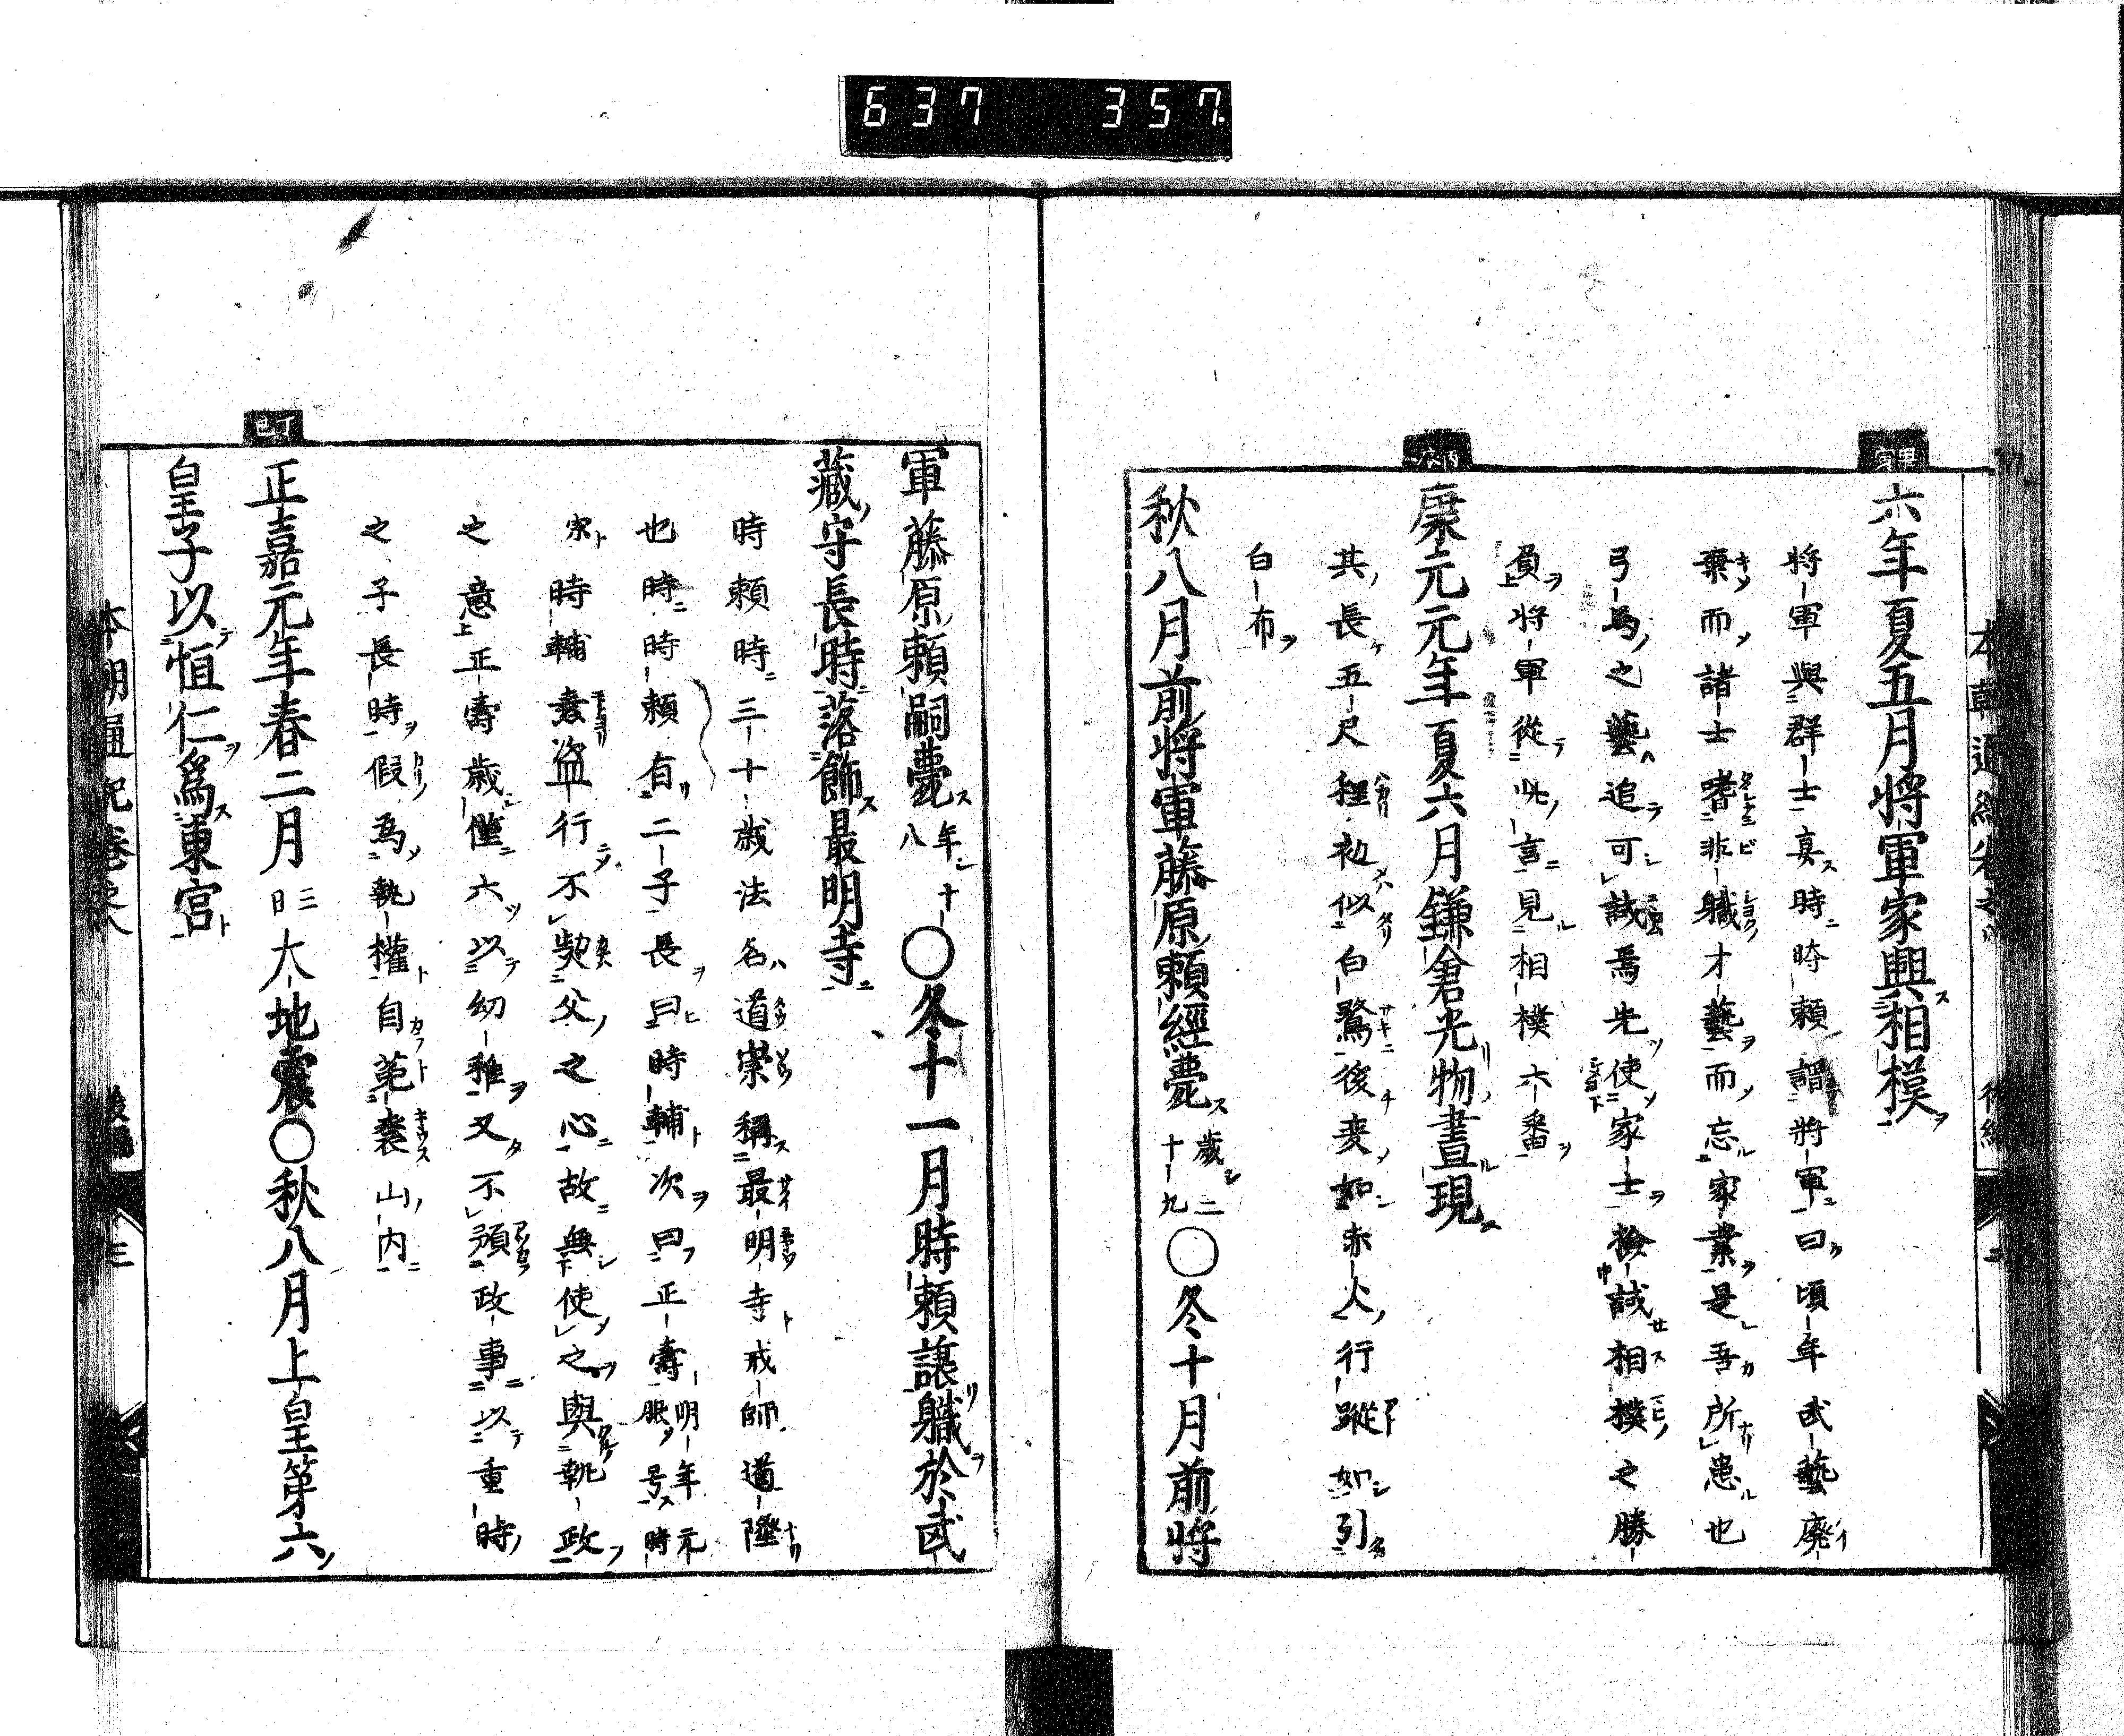 637 357
甲寅
六年夏五月將軍家興相撲
將軍與群士宴時時賴謂將軍曰頃年武藝廢
棄而諸士嗜非職才藝而忘家業是吾所患也
弓馬之藝追可試焉先使家士撿試相撲之勝
負將軍從此言見相撲六番
丙辰
康元元年夏六月鎌倉光物晝現
其長五尺程初似白鷺後変如赤火行蹤如引
白布
秋八月前將軍藤原賴經薨歲二十九〇冬十月前將
軍藤原賴嗣薨年十八〇冬十一月時賴讓職於武
藏守長時落飾最明寺
時賴時三十歲法名道崇稱最明寺戒師道隆
也時時賴有二子長曰時輔次曰正壽明年元服号時
宗時輔蠢盜行不契父之心故無使之與執政
之意正壽歲僅六以幼稚又不預政事以重時
之子長時假為執權自菟裘山内
丁巳
正嘉元年春二月三日大地震〇秋八月上皇第六
皇子以恒仁爲東宮
本朝通紀卷之八 後編 三